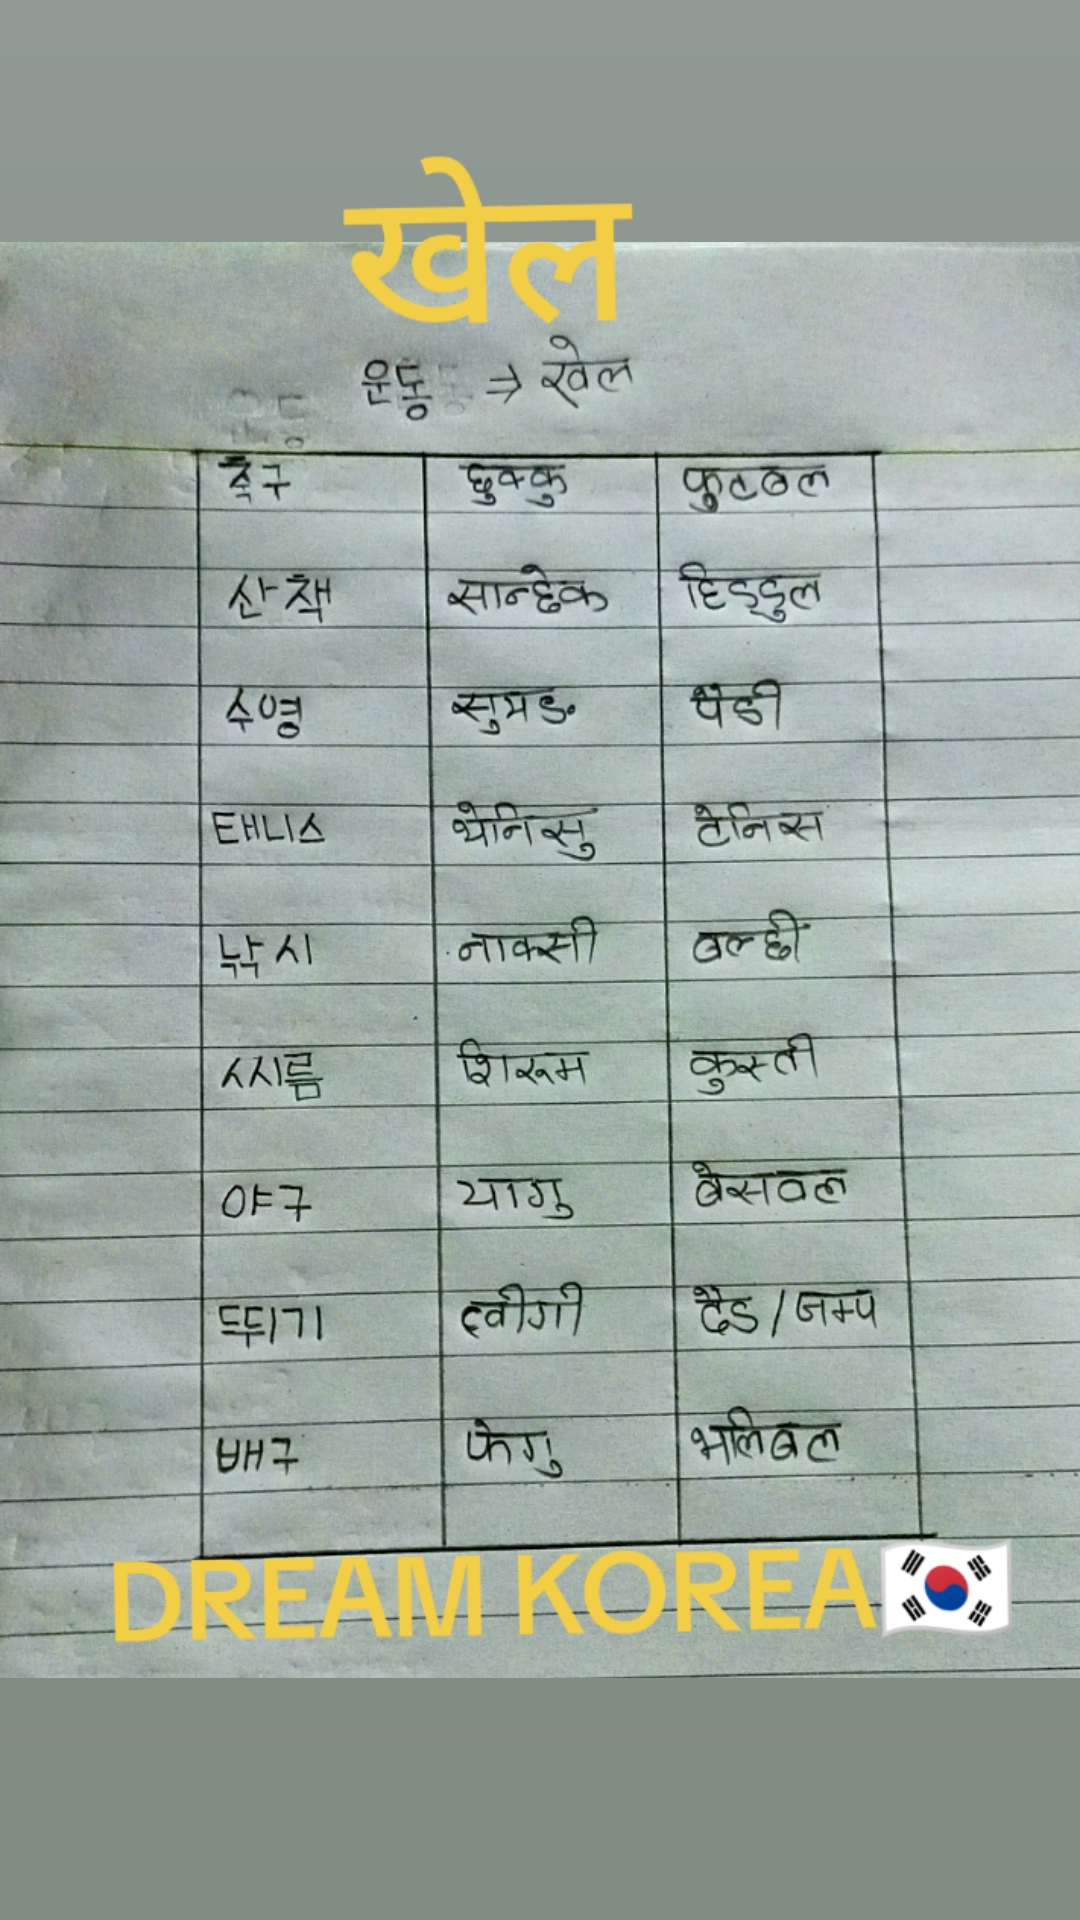 खेल
운동 ⇒ खेल
축구 छुक्कु फुटबल
산책 सान्छेक हिड्डुल
수영 सुयङ पौडी
테니스 थेनिसु टेनिस
낚시 नाक्सी बल्छी
씨름 शिरूम कुस्ती
야구 यागु बेसवल
뛰기 त्वीगी दौड / जम्प
배구 फेगु भलिबल
DREAM KOREA🇰🇷